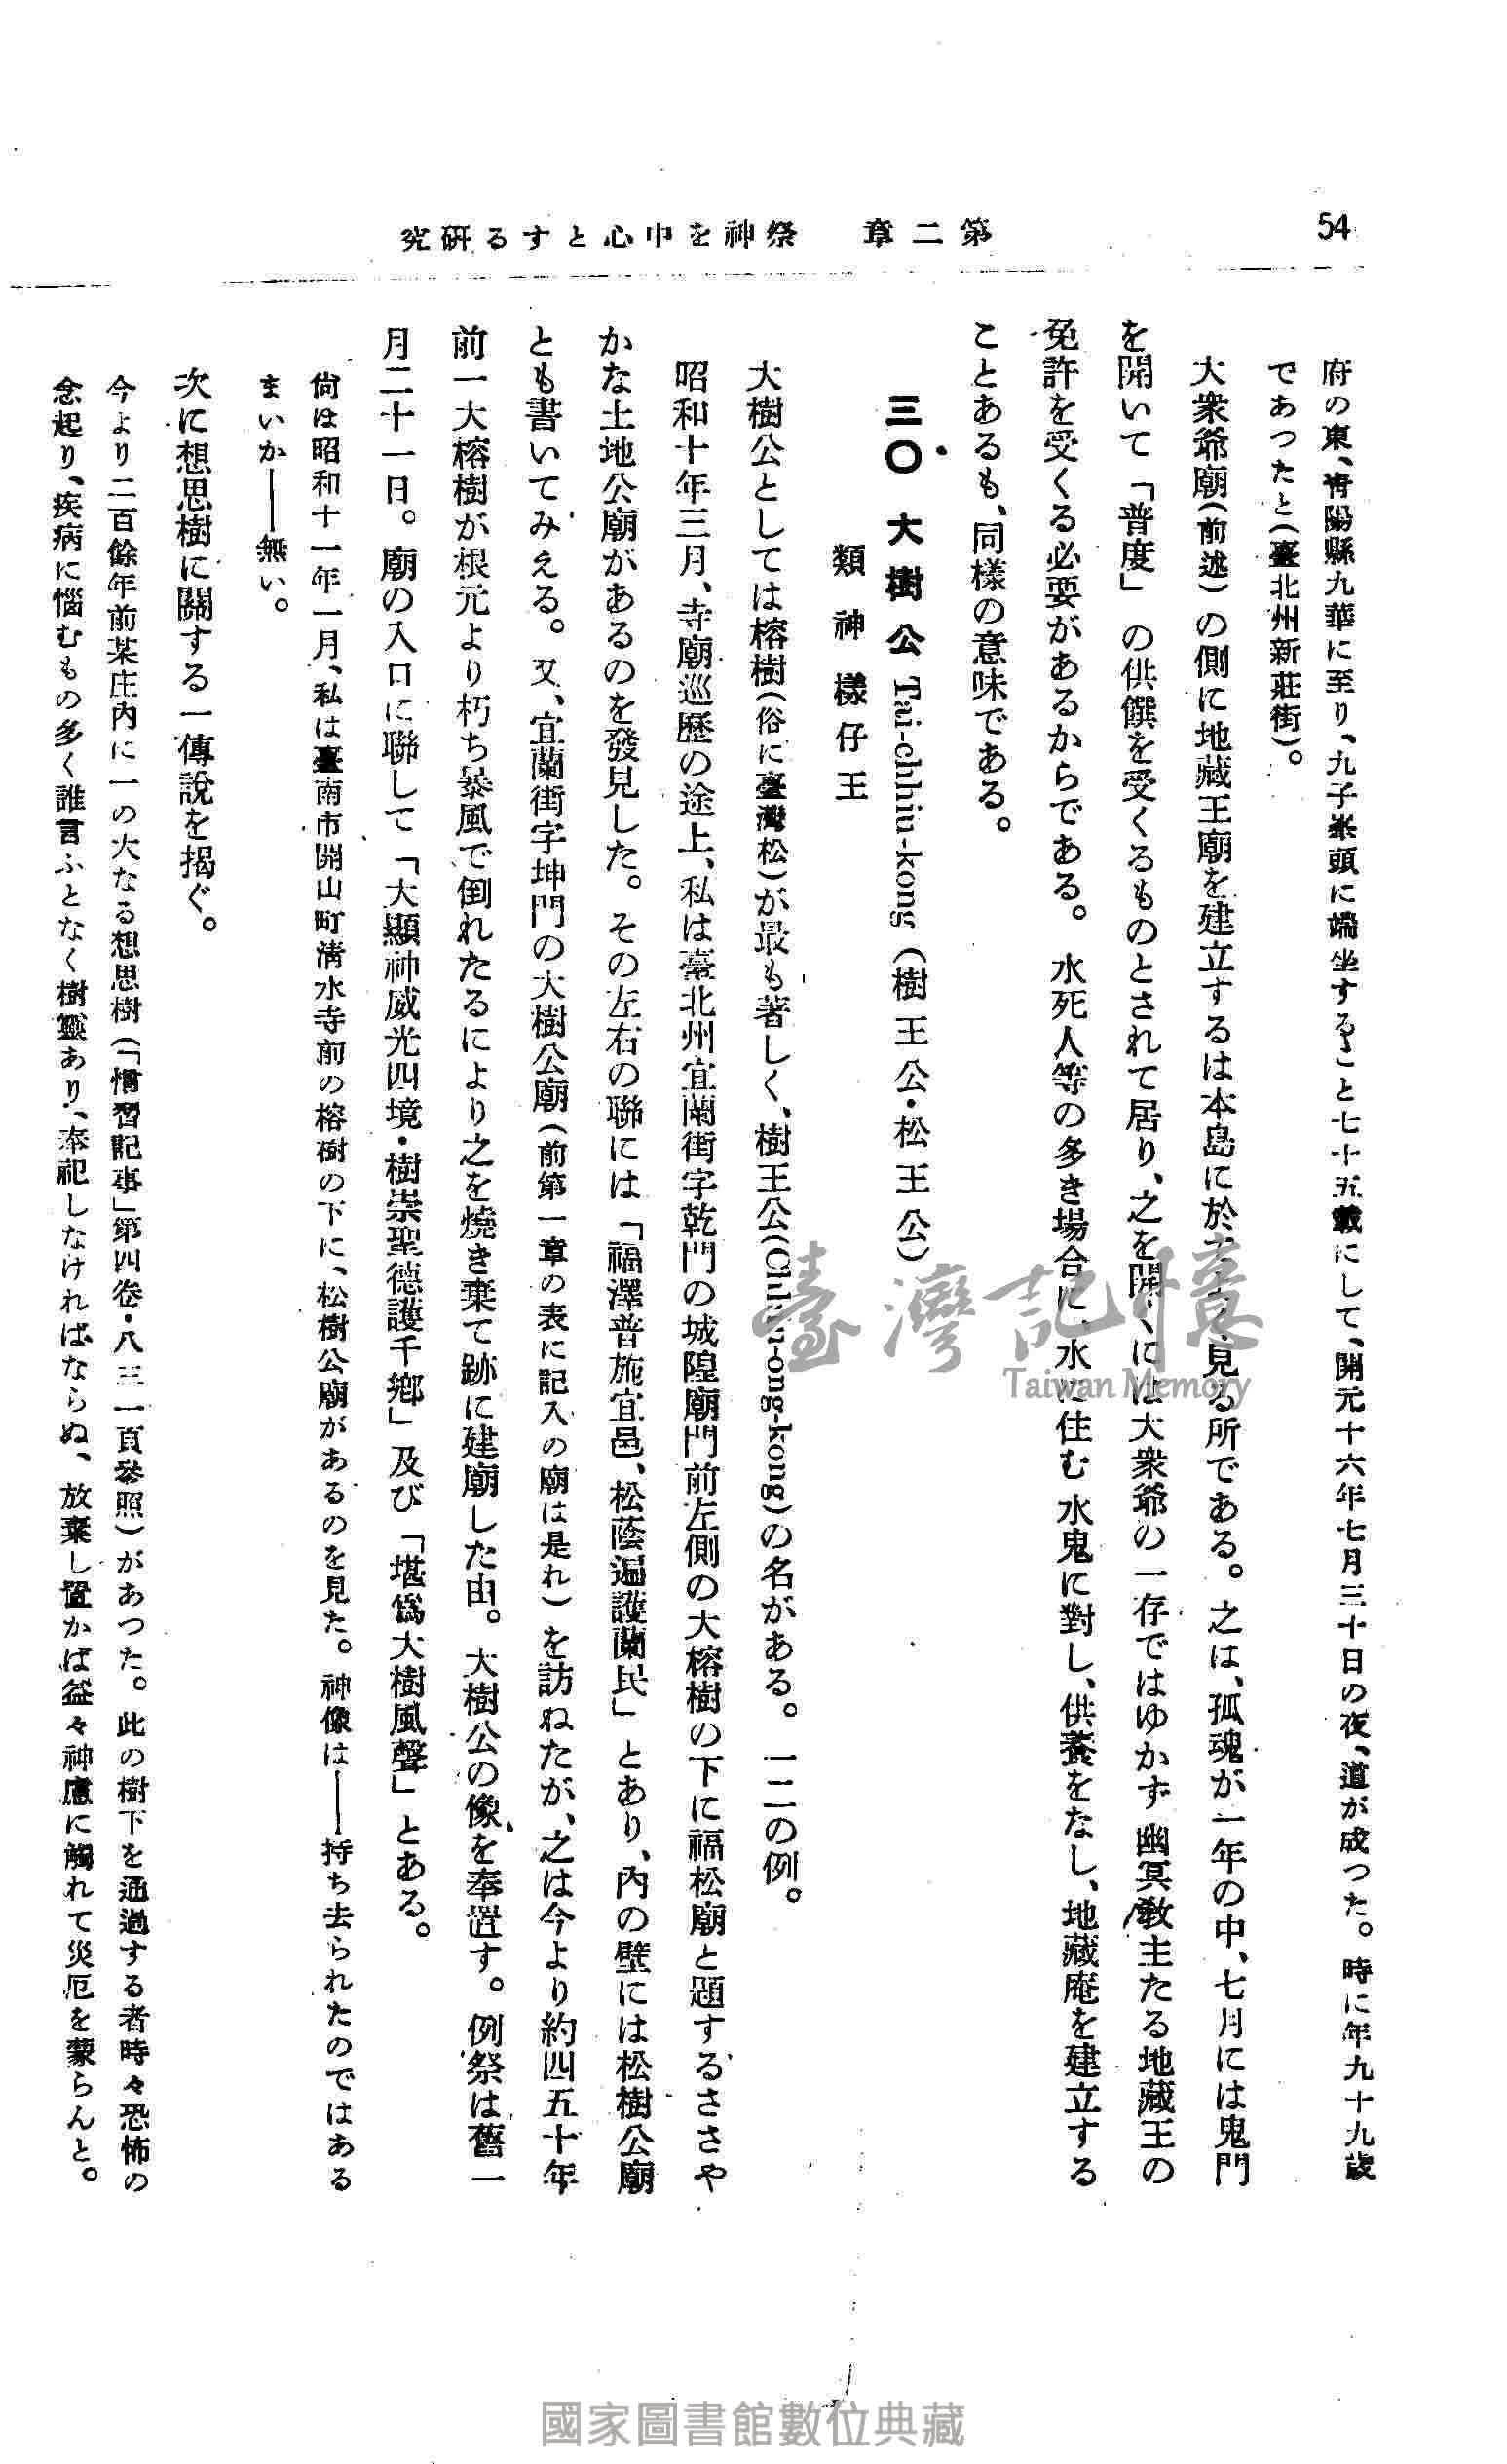 54
第二章　祭神を中心とする研究
府の東、青陽縣九華に至り、九子峯頭に端坐すること七十五載にして、開元十六年七月三十日の夜、道が成つた。時に年九十九歲
であつたと(臺北州新莊街)。
大衆爺廟(前述)の側に地藏王廟を建立するは本島に於て　見る所である。之は、孤魂が一年の中、七月には鬼門
を開いて「普度」の供饌を受くるものとされて居り、之を開くには大衆爺の一存ではゆかず幽冥教主たる地藏王の
免許を受くる必要があるからである。水死人等の多き場合に、水に住む水鬼に對し、供養をなし、地藏庵を建立する
ことあるも、同樣の意味である。
三〇　大樹公 Tai-chhiu-kong (樹王公・松王公)
類神　樣仔王
大樹公としては榕樹(俗に臺灣松)が最も著しく、樹王公(Chhiu-ong-kong)の名がある。一二の例。
昭和十年三月、寺廟巡歷の途上、私は臺北州宜蘭街字乾門の城隍廟門前左側の大榕樹の下に福松廟と題するささや
かな土地公廟があるのを發見した。その左右の聯には「福澤普施宜邑、松蔭遍護蘭民」とあり、內の壁には松樹公廟
とも書いてみえる。又、宜蘭街字坤門の大樹公廟(前第一章の表に記入の廟は是れ)を訪ねたが、之は今より約四五十年
前一大榕樹が根元より朽ち暴風で倒れたるにより之を燒き棄て跡に建廟した由。大樹公の像を奉置す。例祭は舊一
月二十一日。廟の入口に聯して「大顯神威光四境・樹崇聖德護千鄕」及び「堪爲大樹風聲」とある。
尙は昭和十一年一月、私は臺南市開山町淸水寺前の榕樹の下に、松樹公廟があるのを見た。神像は――持ち去られたのではある
まいか――無い。
次に想思樹に關する一傳說を揭ぐ。
今より二百餘年前某庄內に一の大なる想思樹(「慣習記事」第四卷・八三一頁參照)があつた。此の樹下を通過する者時々恐怖の
念起り、疾病に惱むもの多く誰言ふとなく樹靈あり、奉祀しなければならぬ、放棄し置かば益々神慮に觸れて災厄を蒙らんと。
臺灣記憶
Taiwan Memory
國家圖書館數位典藏